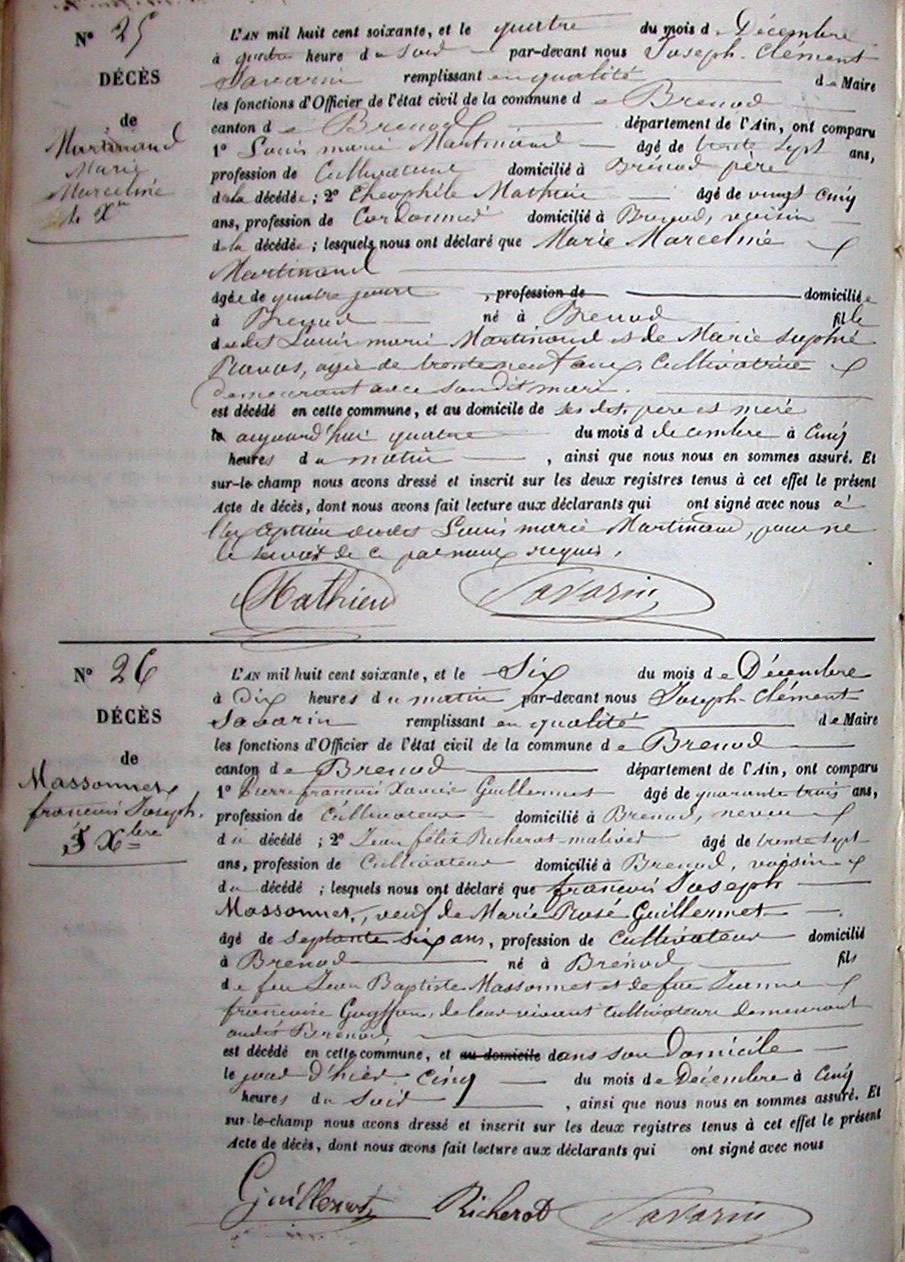 N° 25
DÉCÈS
de
Martinand
Marie
Marcelme
4 Xbre
L'AN mil huit cent soixante, et le quatre du mois de Décembre
à quatre heure du Soir par-devant nous Joseph-Clément
Savarin remplissant en qualité de Maire
les fonctions d'Officier de l'état civil de la commune de Brenod
canton de Brenod département de l'Ain, ont comparu
1° Louis marie Martinand âgé de trente sept ans,
profession de Cultivateur domicilié à Brénod père
de la décédée ; 2° Theophile Mathieu âgé de vingt cinq
ans, profession de Cordonnier domicilié à Brenod, voisin
de la décédée ; lesquels nous ont déclaré que Marie Marcelme
Martinand
âgée de quatre jours, profession de domiciliée
à Brenod né à Brenod fille
dudit Louis marie Martinand et de Marie Sophie
Ravas, agée de trente neuf ans, Cultivatrice
demeurant avec son dit mari.
est décédé en cette commune, et au domicile de ses dits père et mère
le aujourd'hui quatre du mois de decembre à cinq
heures du matin, ainsi que nous nous en sommes assuré. Et
sur-le-champ nous avons dressé et inscrit sur les deux registres tenus à cet effet le présent
Acte de décès, dont nous avons fait lecture aux déclarants qui ont signé avec nous à
l'exception dudit Louis marie Martinand, pour ne
le savoir de ce par nous requis.
Mathieu Savarin
N° 26
DÉCÈS
de
Massonnet
francois Joseph.
5 Xbre
L'AN mil huit cent soixante, et le Six du mois de Décembre
à Dix heures du matin par-devant nous Joseph-Clément
Savarin remplissant en qualité de Maire
les fonctions d'Officier de l'état civil de la commune de Brenod
canton de Brenod département de l'Ain, ont comparu
1° Pierre francois Xavier Guillermet âgé de quarante trois ans,
profession de Cultivateur domicilié à Brenod, neveu
du décédé ; 2° Jean félix Richerot âgé de trente sept
ans, profession de Cultivateur domicilié à Brenod, voisin
du décédé ; lesquels nous ont déclaré que francois Joseph
Massonnet, veuf de Marie Rose Guillermet
âgé de septante six ans, profession de Cultivateur domicilié
à Brenod né à Brenod fils
de feu Jean Baptiste Massonnet et de fue Jeanne
francoise de leur vivant cultivateurs demeurant
audit Brenod,
est décédé en cette commune, et au domicile dans son Domicile
le jour d'hier cinq du mois de Décembre à Cinq
heures du Soir, ainsi que nous nous en sommes assuré. Et
sur-le-champ nous avons dressé et inscrit sur les deux registres tenus à cet effet le présent
Acte de décès, dont nous avons fait lecture aux déclarants qui ont signé avec nous
Guillermet Richerot Savarin